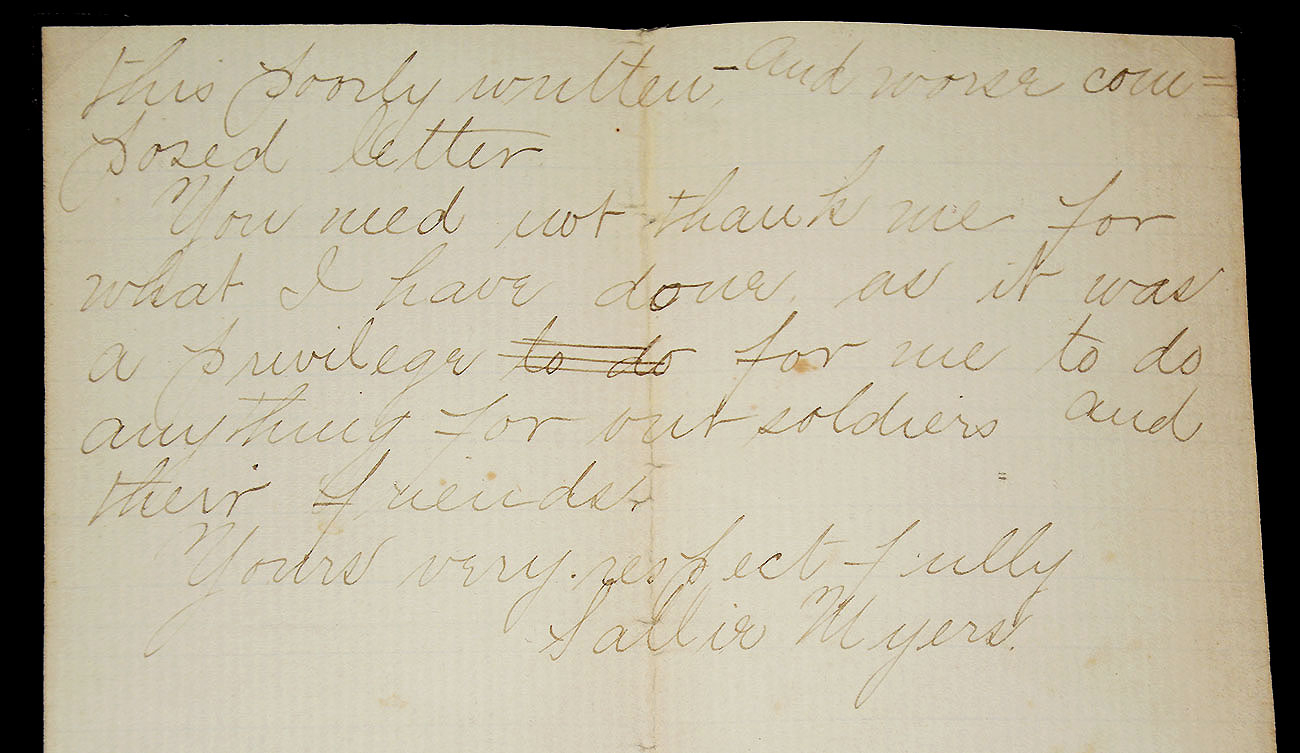 this poorly written, - and worse com=
posed letter
You need not thank me for
what I have done, as it was
a privilege to do for me to do
anything for our soldiers and
their friends.
Yours very respectfully
Sallie Myers.